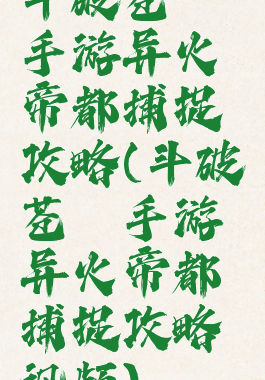 斗破苍
手游异火
帝都捕捉
攻略(斗破
苍 手游
异火帝都
捕捉攻略
视频)